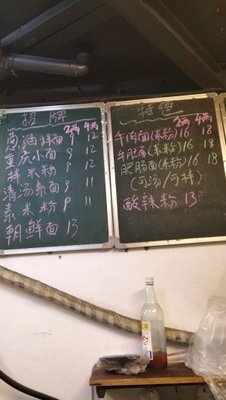 招牌
2两 4两
酱油拌面 9 12
重庆小面 9 12
拌米粉 9 12
清汤素面 9 11
素米粉 9 11
朝鲜面 13
特色
2两 4两
牛肉面(米粉) 16 18
牛肚面(米粉) 16 18
肥肠面(米粉) 16 18
(可汤/可拌)
酸辣粉 13